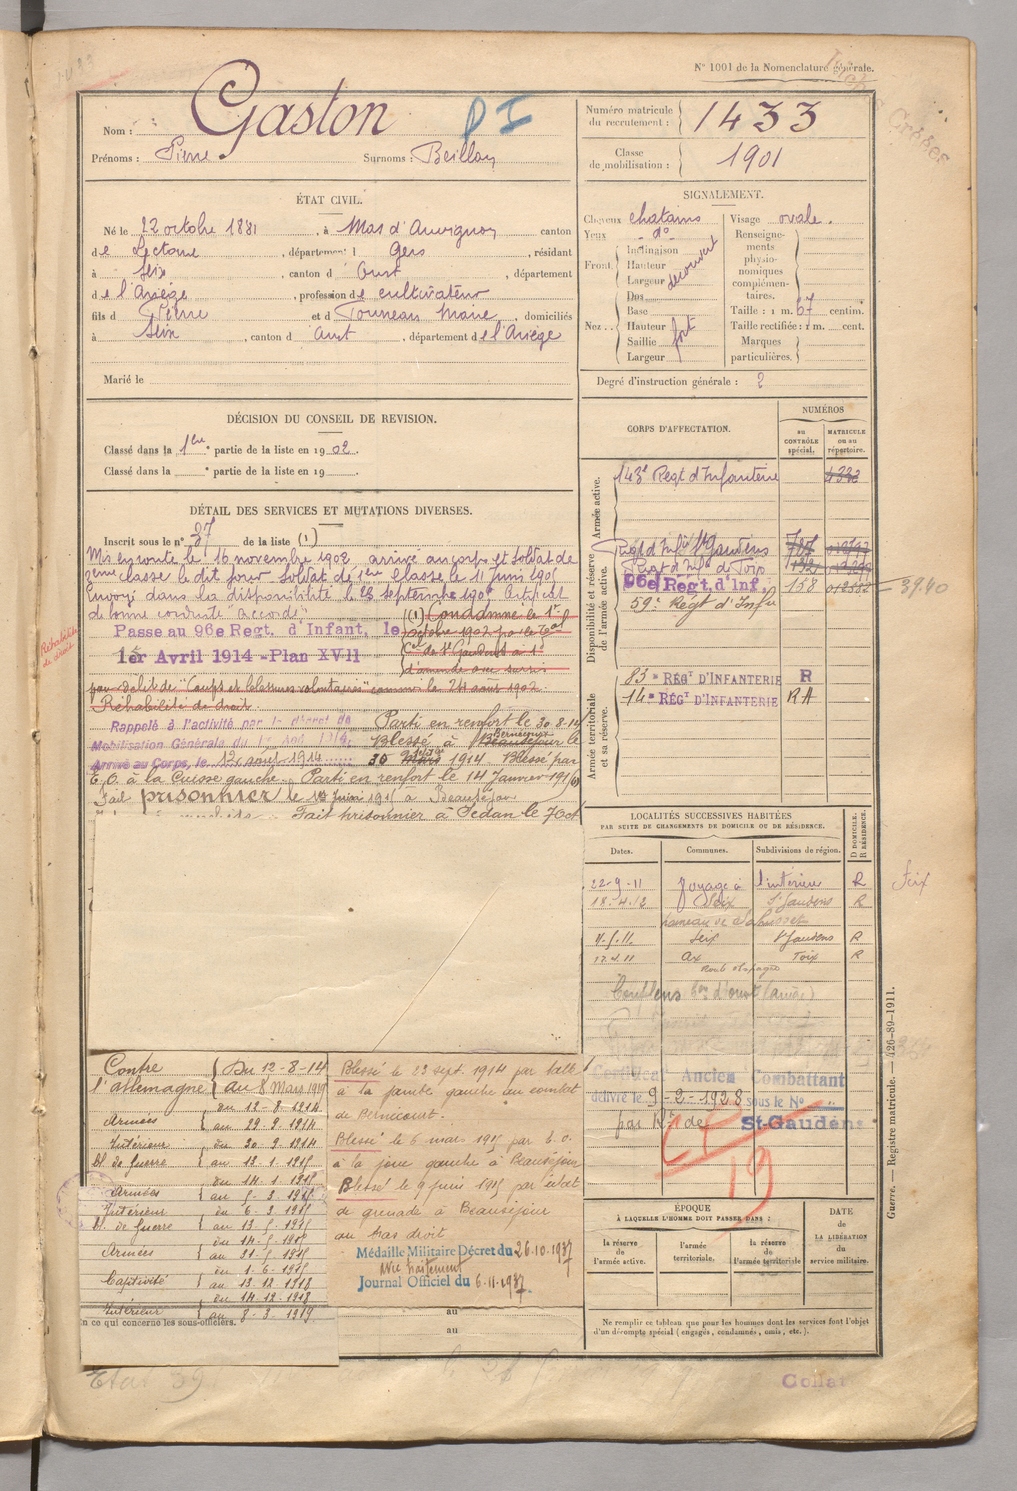 N° 1001 de la Nomenclature générale.
1433
Nom : Gaston
P I
Prénoms : Pierre Surnoms : Beillou
Numéro matricule du recrutement : 1433
Classe de mobilisation : 1901
ÉTAT CIVIL.
Né le 22 octobre 1881, à Mas d'Auvignon canton
de Lectoure, département Gers, résidant
à Seix, canton d'Oust, département
de l'Ariège, profession de cultivateur
fils de Pierre et de Tourneau Marie, domiciliés
à Seix, canton d'Oust, département de l'Ariège
Marié le
SIGNALEMENT.
Cheveux chatains Visage ovale.
Yeux d°
Front Inclinaison Hauteur Largeur découvert
Nez Dos Base Hauteur Saillie Largeur fort
Renseignements physionomiques complémentaires.
Taille : 1 m. 67 centim.
Taille rectifiée : 1 m. cent.
Marques particulières.
Degré d'instruction générale : 2
DÉCISION DU CONSEIL DE REVISION.
Classé dans la 1ère partie de la liste en 1902.
Classé dans la partie de la liste en 19
DÉTAIL DES SERVICES ET MUTATIONS DIVERSES.
Inscrit sous le n° 37 de la liste (1)
Mis en route le 16 novembre 1902 arrivé au corps et soldat de
2eme classe le dit jour Soldat de 1ère Classe le 11 juin 190
Envoyé dans la disponibilité le 23 septembre 190 Certificat
de bonne conduite "accordé"
(1) Condamné le 1er
octobre 1902 par le Tal
Cel de St Gaudens à 1f
d'amende avec sursis
pour délit de "Coups et blessures volontaires" commis le 24 août 1902.
Réhabilité de droit.
Réhabilité de droit
Passe au 96e Regt. d'Infant, le
1er Avril 1914 - Plan XVII
Rappelé à l'activité par le décret de
Mobilisation Générale du 1er Aoû 1914.
Arrivé au Corps, le 12 août 1914
Parti en renfort le 30-8-14
Blessé à Beauséjour Bernecourt le
30 Mars 1914 Blessé par
E. O. à la Cuisse gauche. Parti en renfort le 14 Janvier 1915
Fait prisonnier le Juin 1915 à Beauséjour
Fait prisonnier à Sedan le 7 Oct.
CORPS D'AFFECTATION.
NUMÉROS
au CONTRÔLE spécial.
MATRICULE ou au répertoire.
Armée active.
143e Regt d'Infanterie
Disponibilité et réserve de l'armée active.
Regt d'Infie St Gaudens
Regt d'Infie de Foix
96e Regt. d'Inf. 158
59e Regt d'Infie
3940
Armée territoriale et sa réserve.
83e RÉGT D'INFANTERIE R
14e RÉGT D'INFANTERIE RA
LOCALITÉS SUCCESSIVES HABITÉES
PAR SUITE DE CHANGEMENTS DE DOMICILE OU DE RÉSIDENCE.
Dates. Communes. Subdivisions de région. D DOMICILE. R RÉSIDENCE.
22-9-11 Voyage à l'intérieur R
Seix
18-4-12 Seix St Gaudens R
hameau de
Seix St Gaudens R
Ax Foix R
Couflens
Certificat Ancien Combattant
délivré le 9-2-1928 sous le No
par Rt de St-Gaudens
19
ÉPOQUE
À LAQUELLE L'HOMME DOIT PASSER DANS :
la réserve de l'armée active.
l'armée territoriale.
la réserve de l'armée territoriale.
DATE DE LA LIBÉRATION du service militaire.
Ne remplir ce tableau que pour les hommes dont les services font l'objet
d'un décompte spécial (engagés, condamnés, omis, etc.).
Contre l'allemagne Du 12-8-14 au 8 Mars 1919
Armées du 12-8-1914 au 29-9-1914
Intérieur du 30-9-1914
bl. de Guerre au 13-1-1915
Armées du 14-1-1915 au 5-3-1915
Intérieur du 6-3-1915
bl. de Guerre au 13-5-1915
Armées du 14-5-1915 au 31-5-1915
Captivité du 1-6-1915 au 13-12-1918
Intérieur du 14-12-1918 au 8-3-1919
Blessé le 23 sept. 1914 par balle
à la jambe gauche au combat
de Bernécourt.
Blessé le 6 mars 1915 par E. O.
à la joue gauche à Beauséjour
Blessé le 9 juin 1915 par éclat
de grenade à Beauséjour
au bras droit
Médaille Militaire Décret du 26.10.1937
Avec traitement
Journal Officiel du 6.11.1937.
en ce qui concerne les sous-officiers.
au
au
Guerre. — Registre matricule. — 426-89-1911.
Etat 39